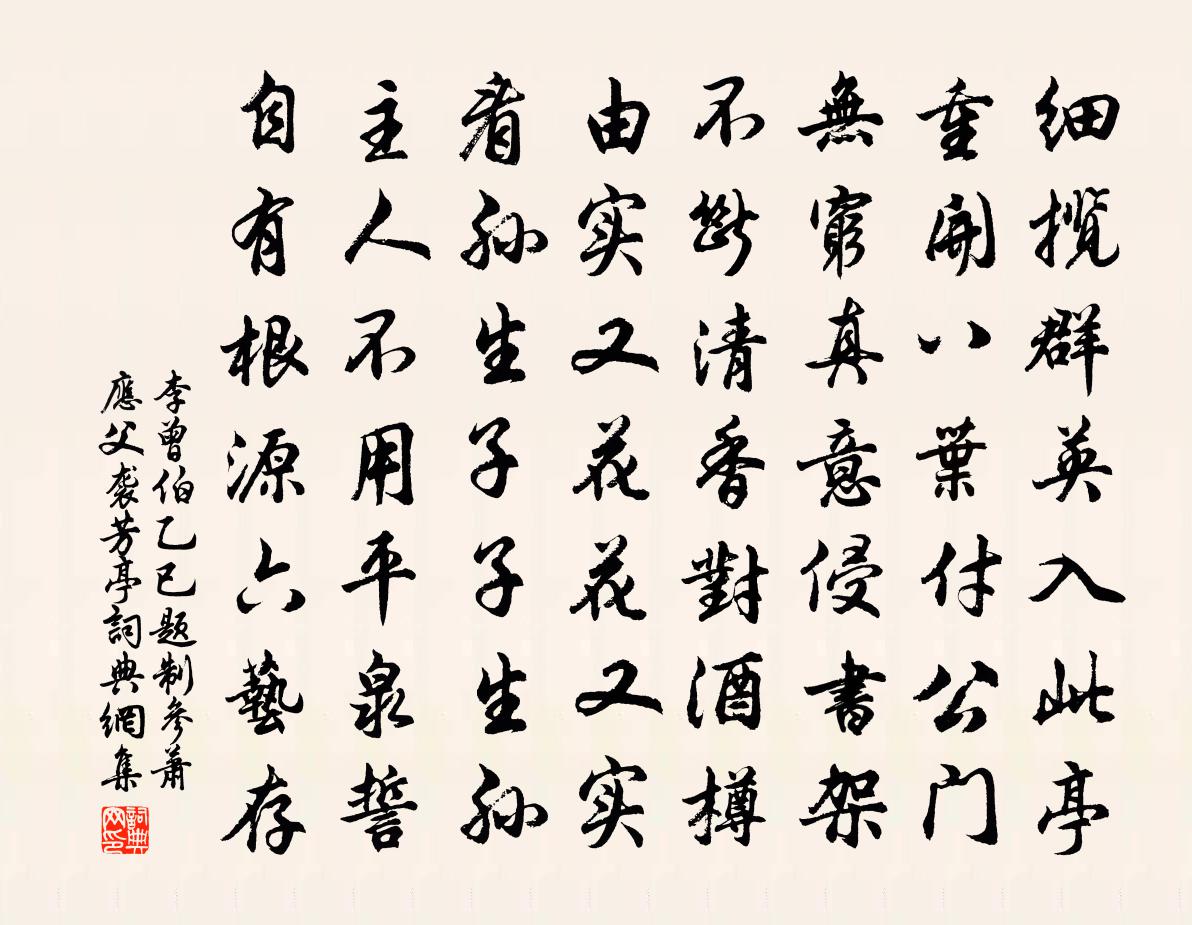 细揽群英入此亭
重開八葉付公门
無窮真意侵書架
不斷清香對酒樽
由实又花花又实
看孙生子子生孙
主人不用平泉誓
自有根源六藝存
李曾伯乙巳题制參萧
應父袭芳亭詞典網集
詞典
网印